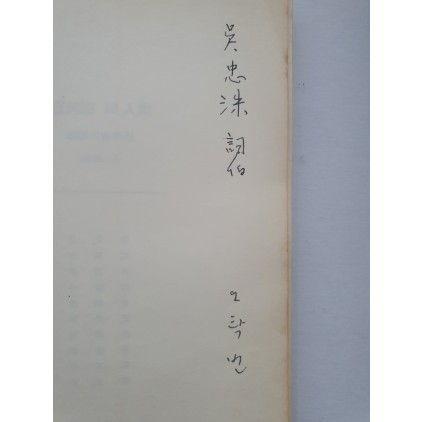 吳忠洙 詞伯
오탁번